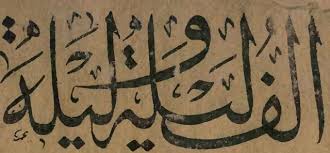 الف ليلة وليلة